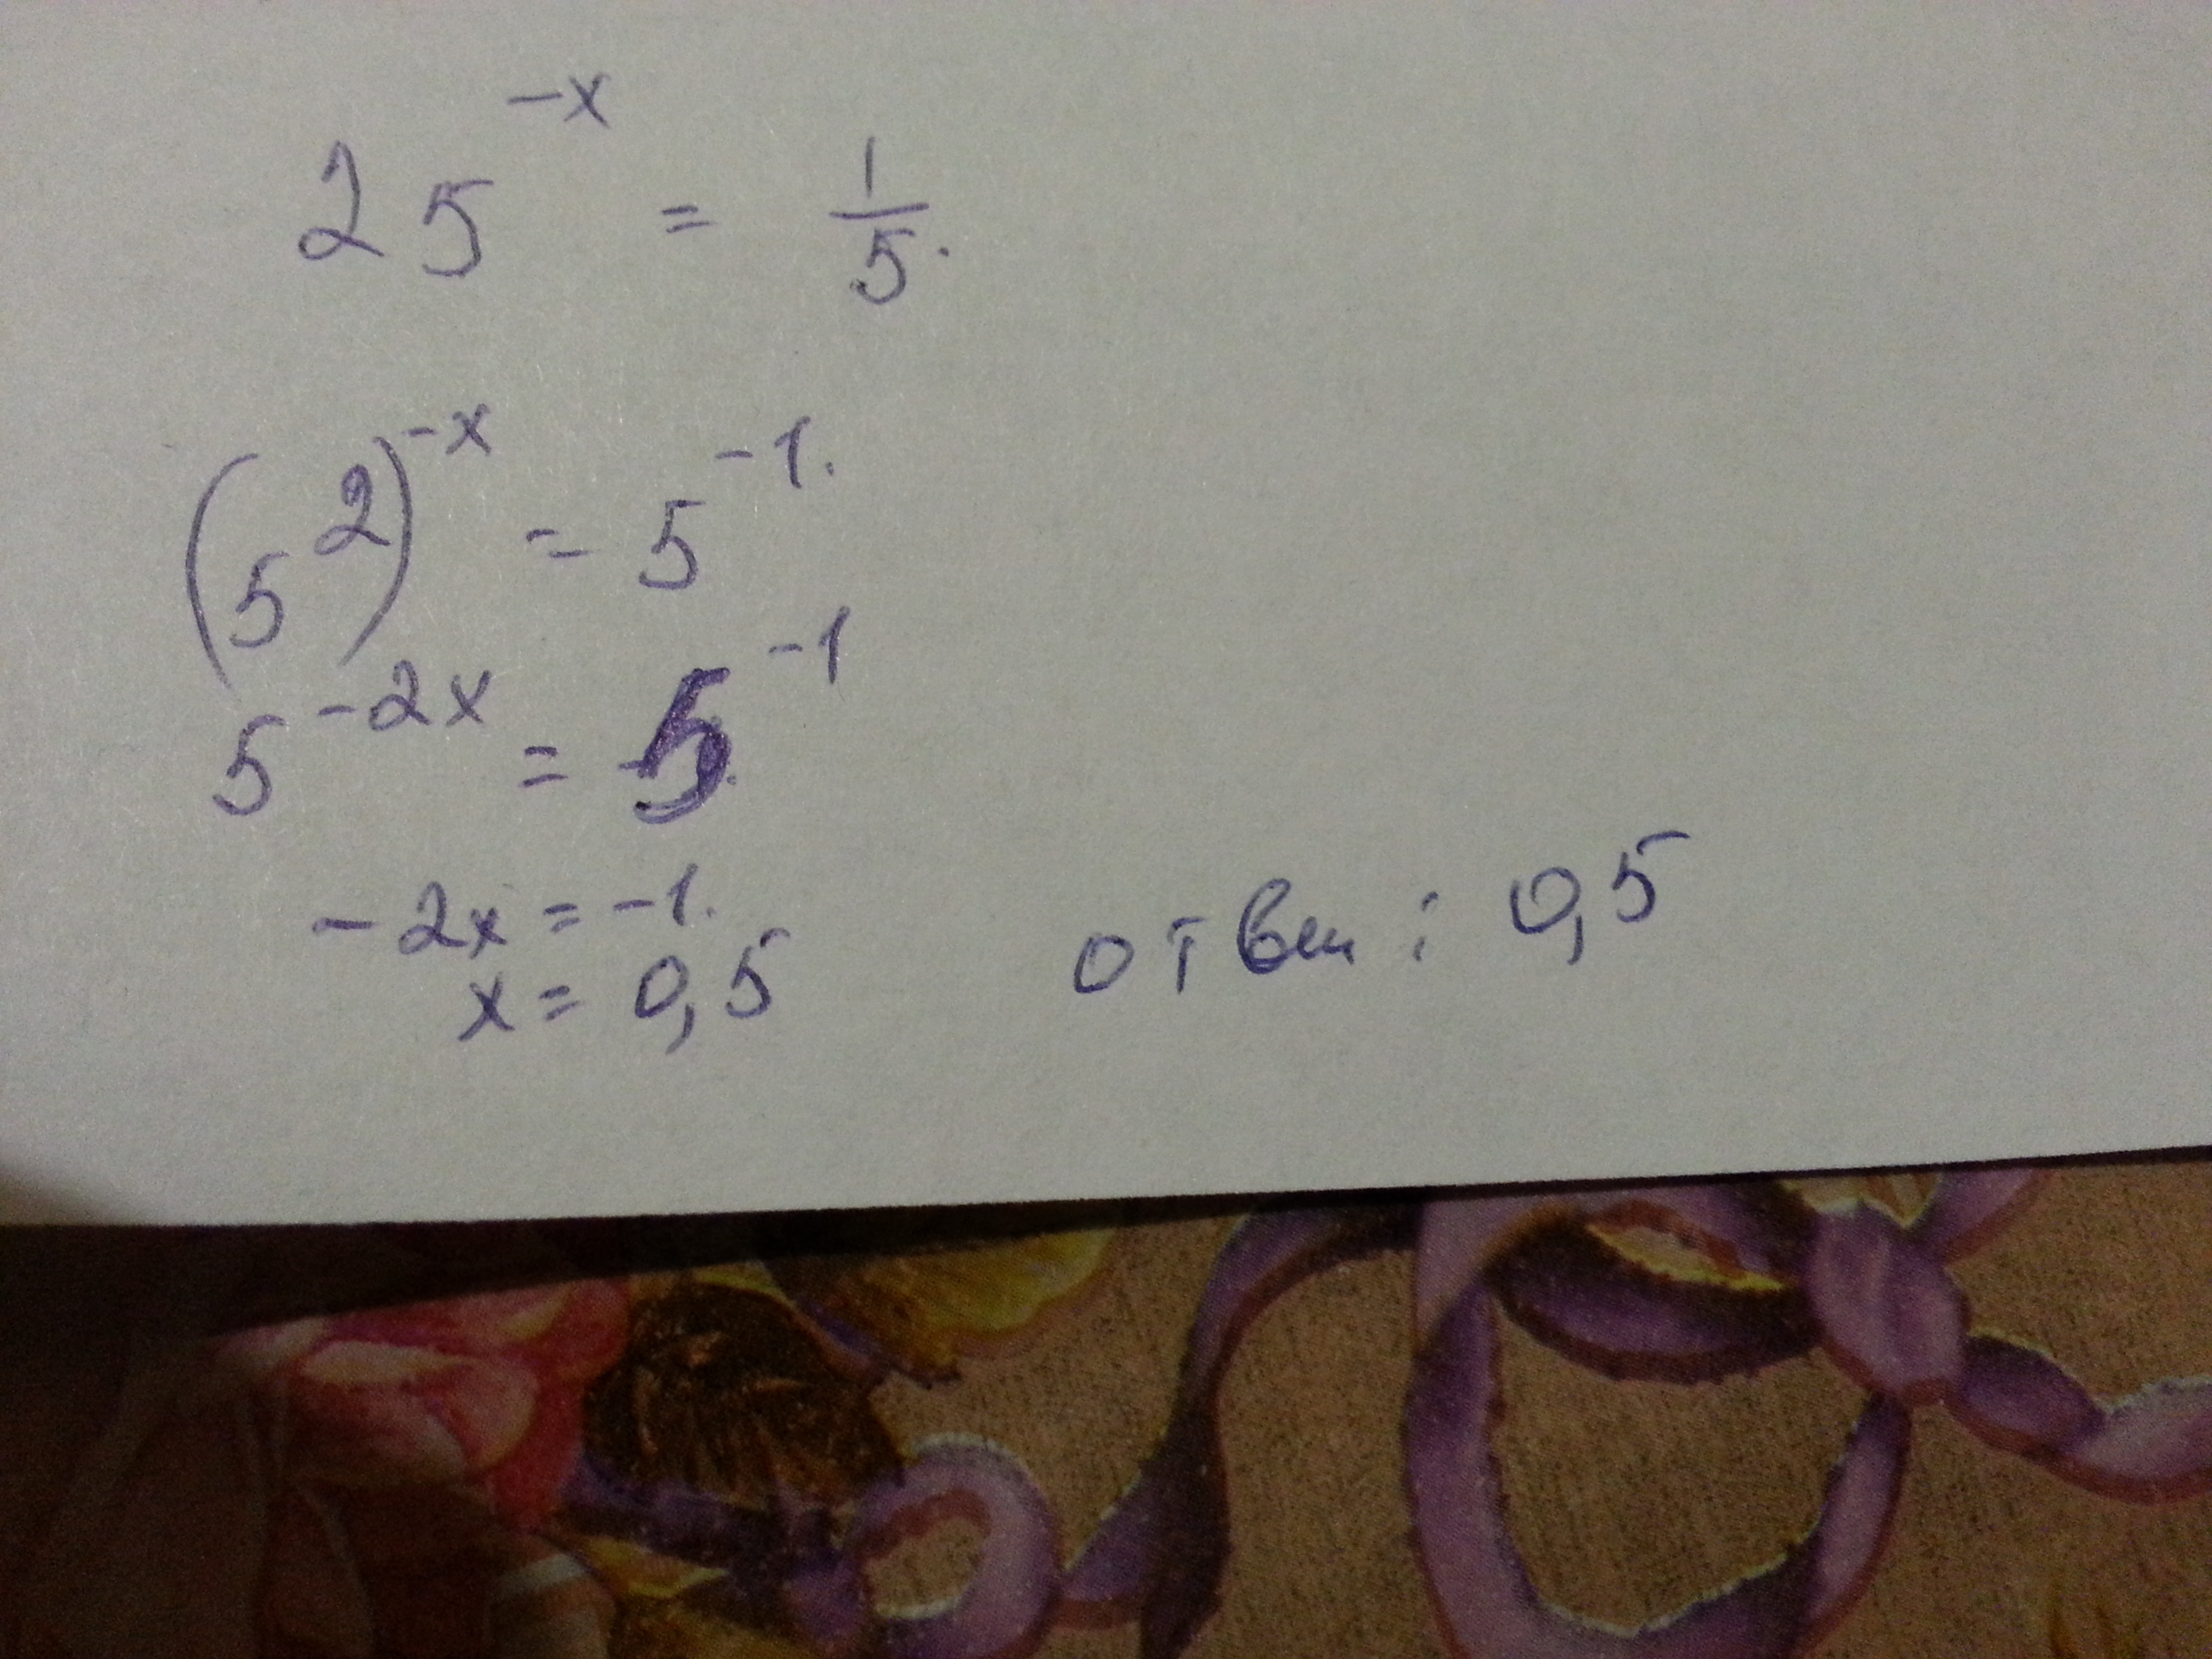 25^{-x} = 1/5.
(5^2)^{-x} = 5^{-1}.
5^{-2x} = 5^{-1}
-2x = -1.
x = 0,5
ответ : 0,5